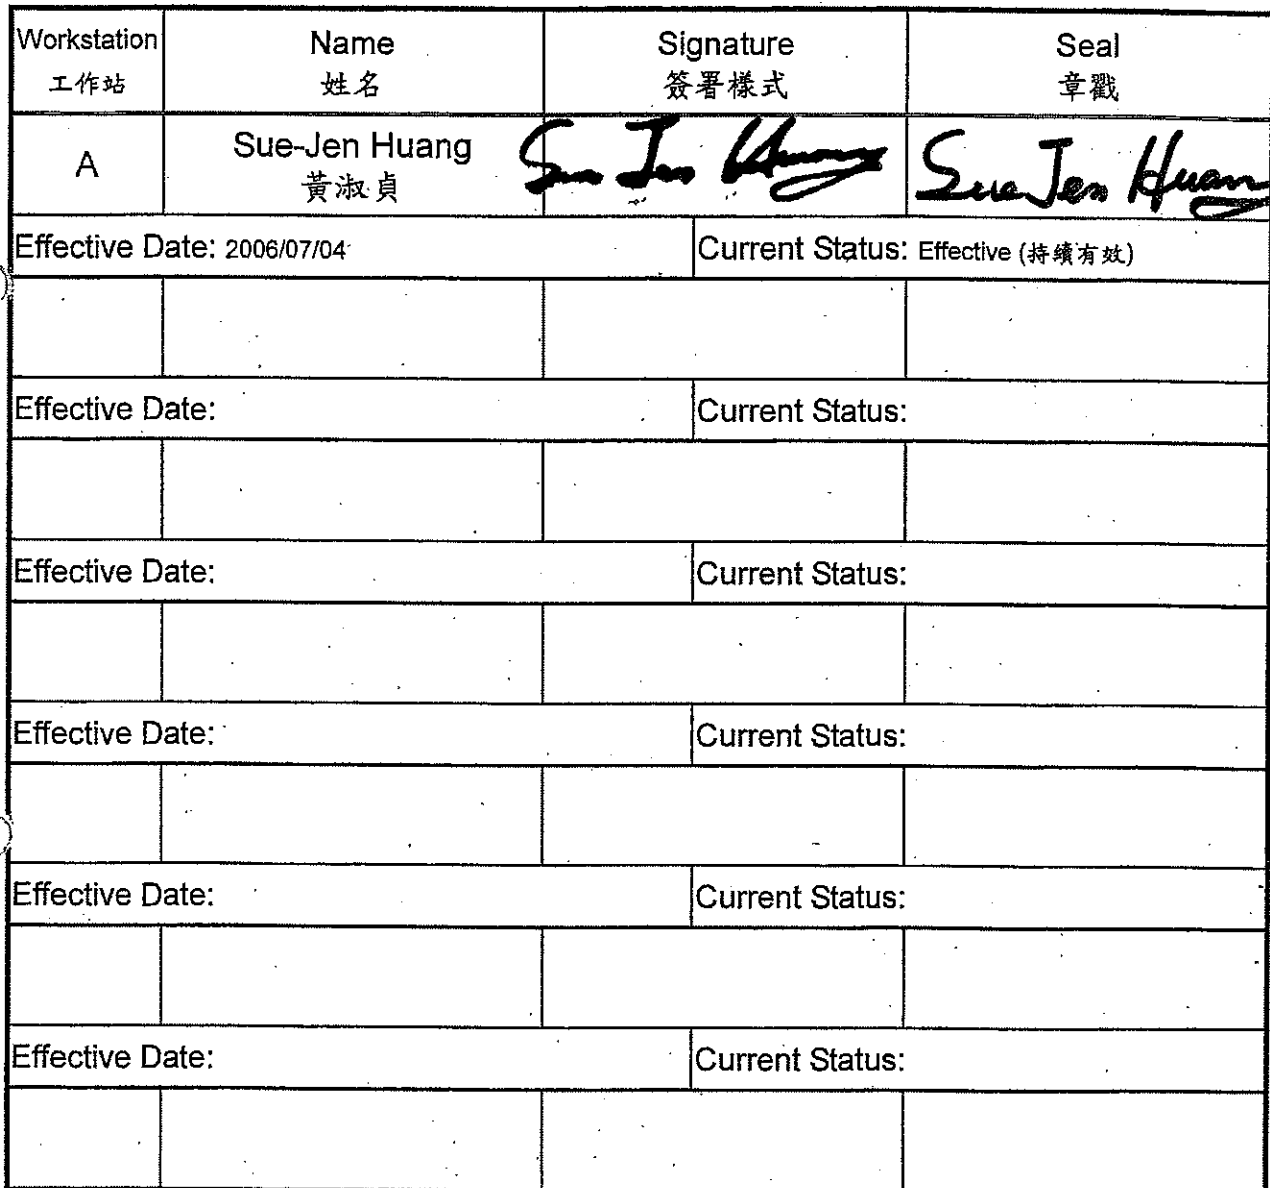 Workstation
工作站
Name
姓名
Signature
簽署樣式
Seal
章戳
A
Sue-Jen Huang
黃淑貞
Sue Jen Huang
Sue Jen Huang
Effective Date: 2006/07/04
Current Status: Effective (持續有效)
Effective Date:
Current Status:
Effective Date:
Current Status:
Effective Date:
Current Status:
Effective Date:
Current Status:
Effective Date:
Current Status: